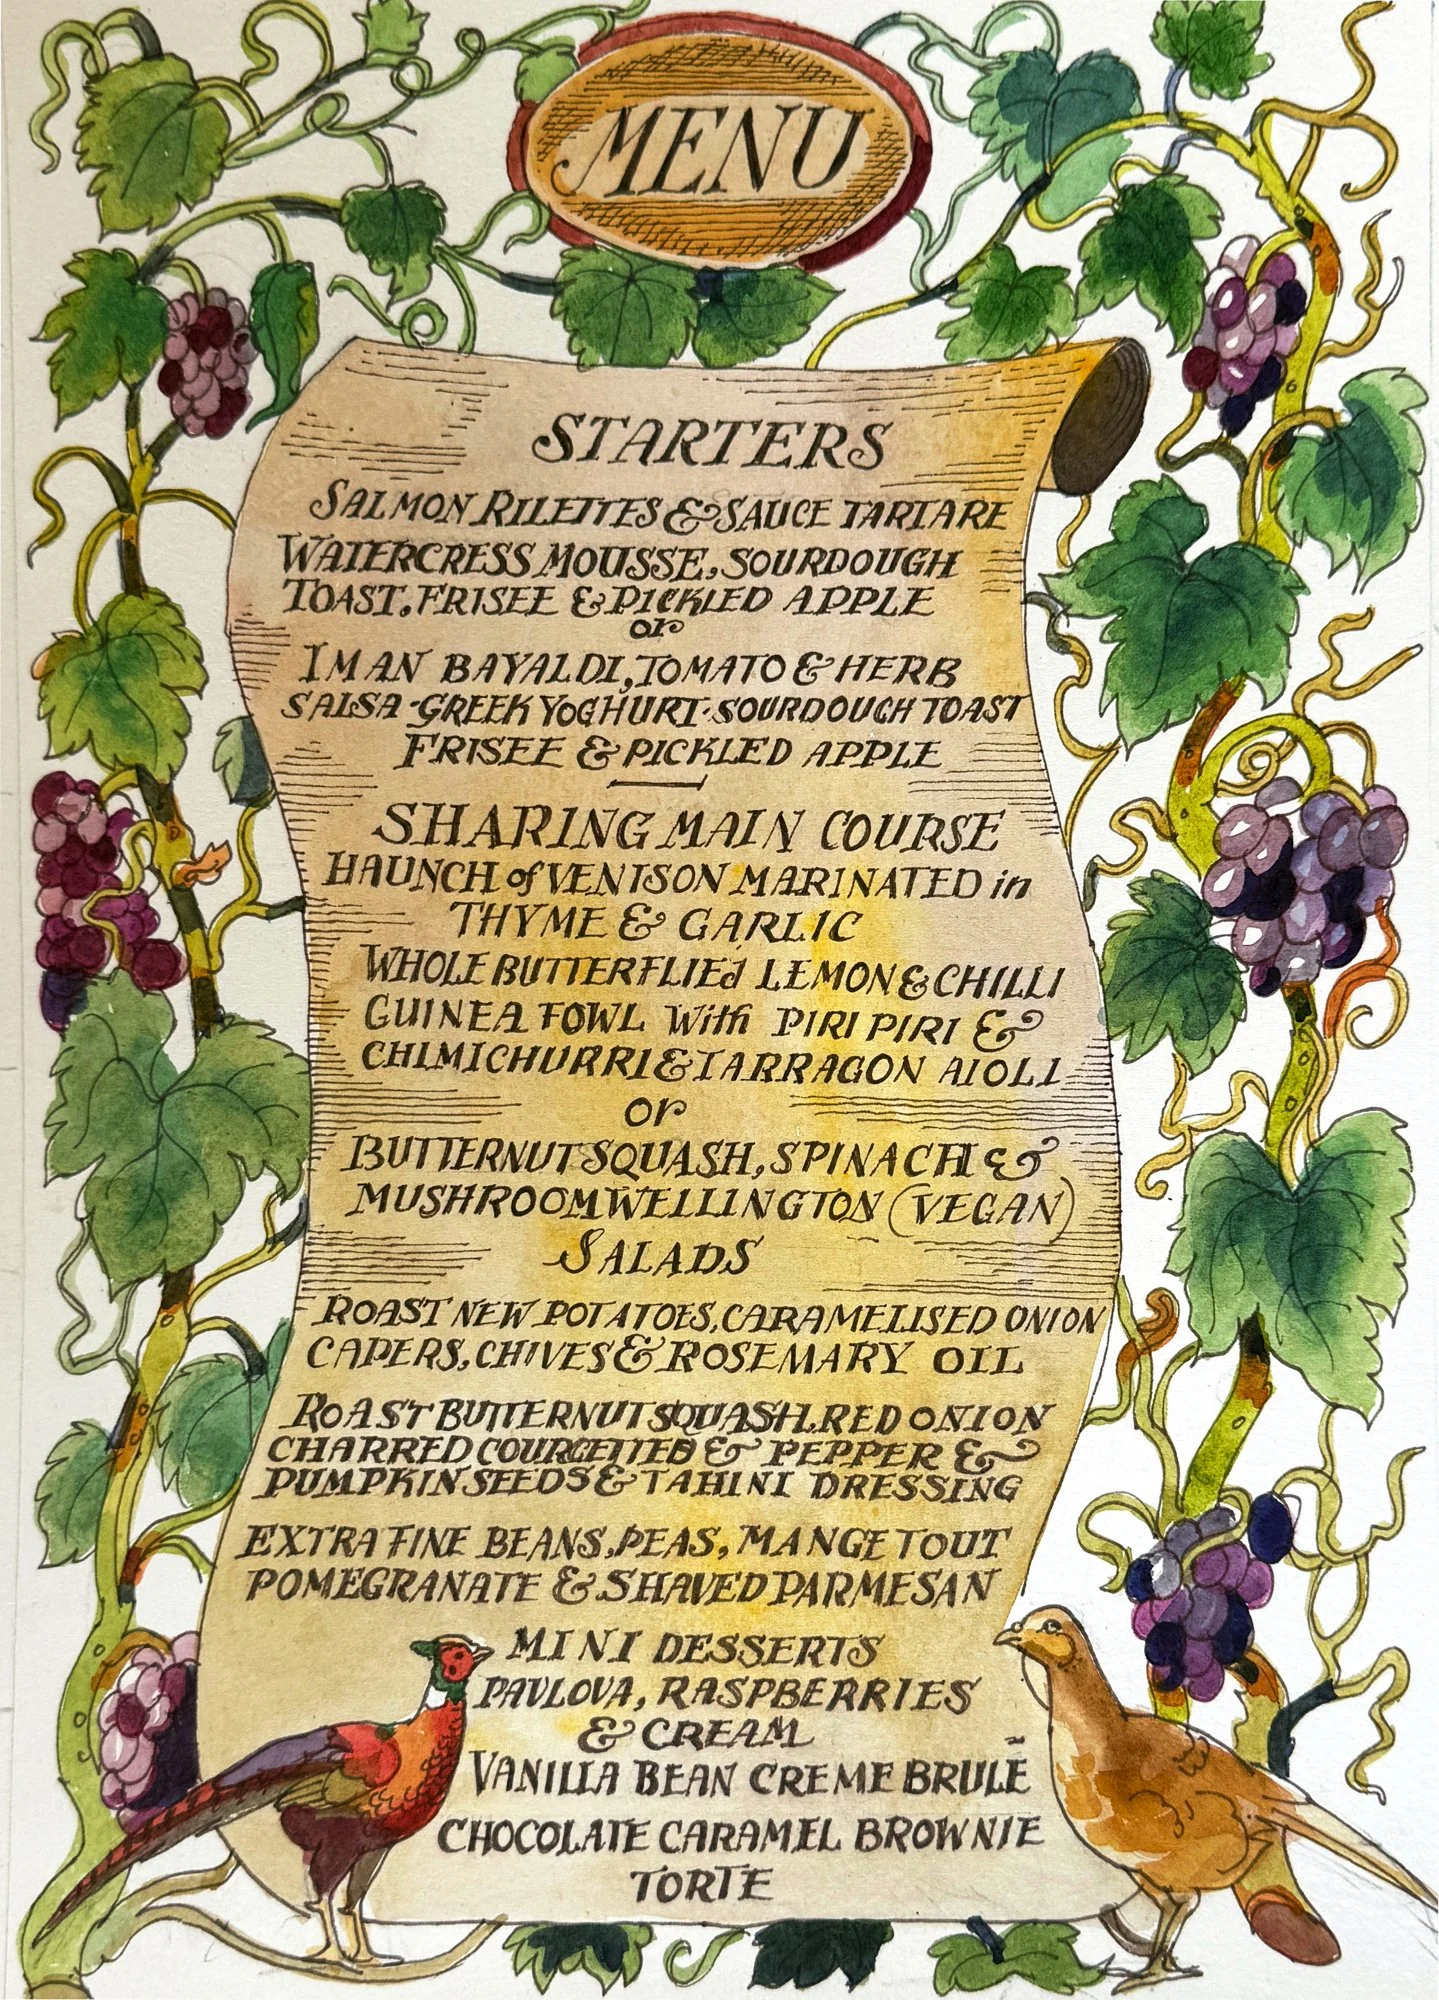 MENU
STARTERS
SALMON RILETTES & SAUCE TARTARE
WATERCRESS MOUSSE, SOURDOUGH
TOAST. FRISEE & PICKLED APPLE
or
IMAN BAYALDI, TOMATO & HERB
SALSA - GREEK YOGHURT · SOURDOUGH TOAST
FRISEE & PICKLED APPLE
SHARING MAIN COURSE
HAUNCH of VENISON MARINATED in
THYME & GARLIC
WHOLE BUTTERFLIEd LEMON & CHILLI
GUINEA FOWL With PIRI PIRI &
CHIMICHURRI & TARRAGON AIOLI
or
BUTTERNUT SQUASH, SPINACH &
MUSHROOM WELLINGTON (VEGAN)
SALADS
ROAST NEW POTATOES, CARAMELISED ONION
CAPERS, CHIVES & ROSEMARY OIL
ROAST BUTTERNUT SQUASH. RED ONION
CHARRED COURGETTES & PEPPER &
PUMPKIN SEEDS & TAHINI DRESSING
EXTRA FINE BEANS, PEAS, MANGE TOUT
POMEGRANATE & SHAVED PARMESAN
MINI DESSERTS
PAVLOVA, RASPBERRIES
& CREAM
VANILLA BEAN CREME BRULĒ
CHOCOLATE CARAMEL BROWNIE
TORTE